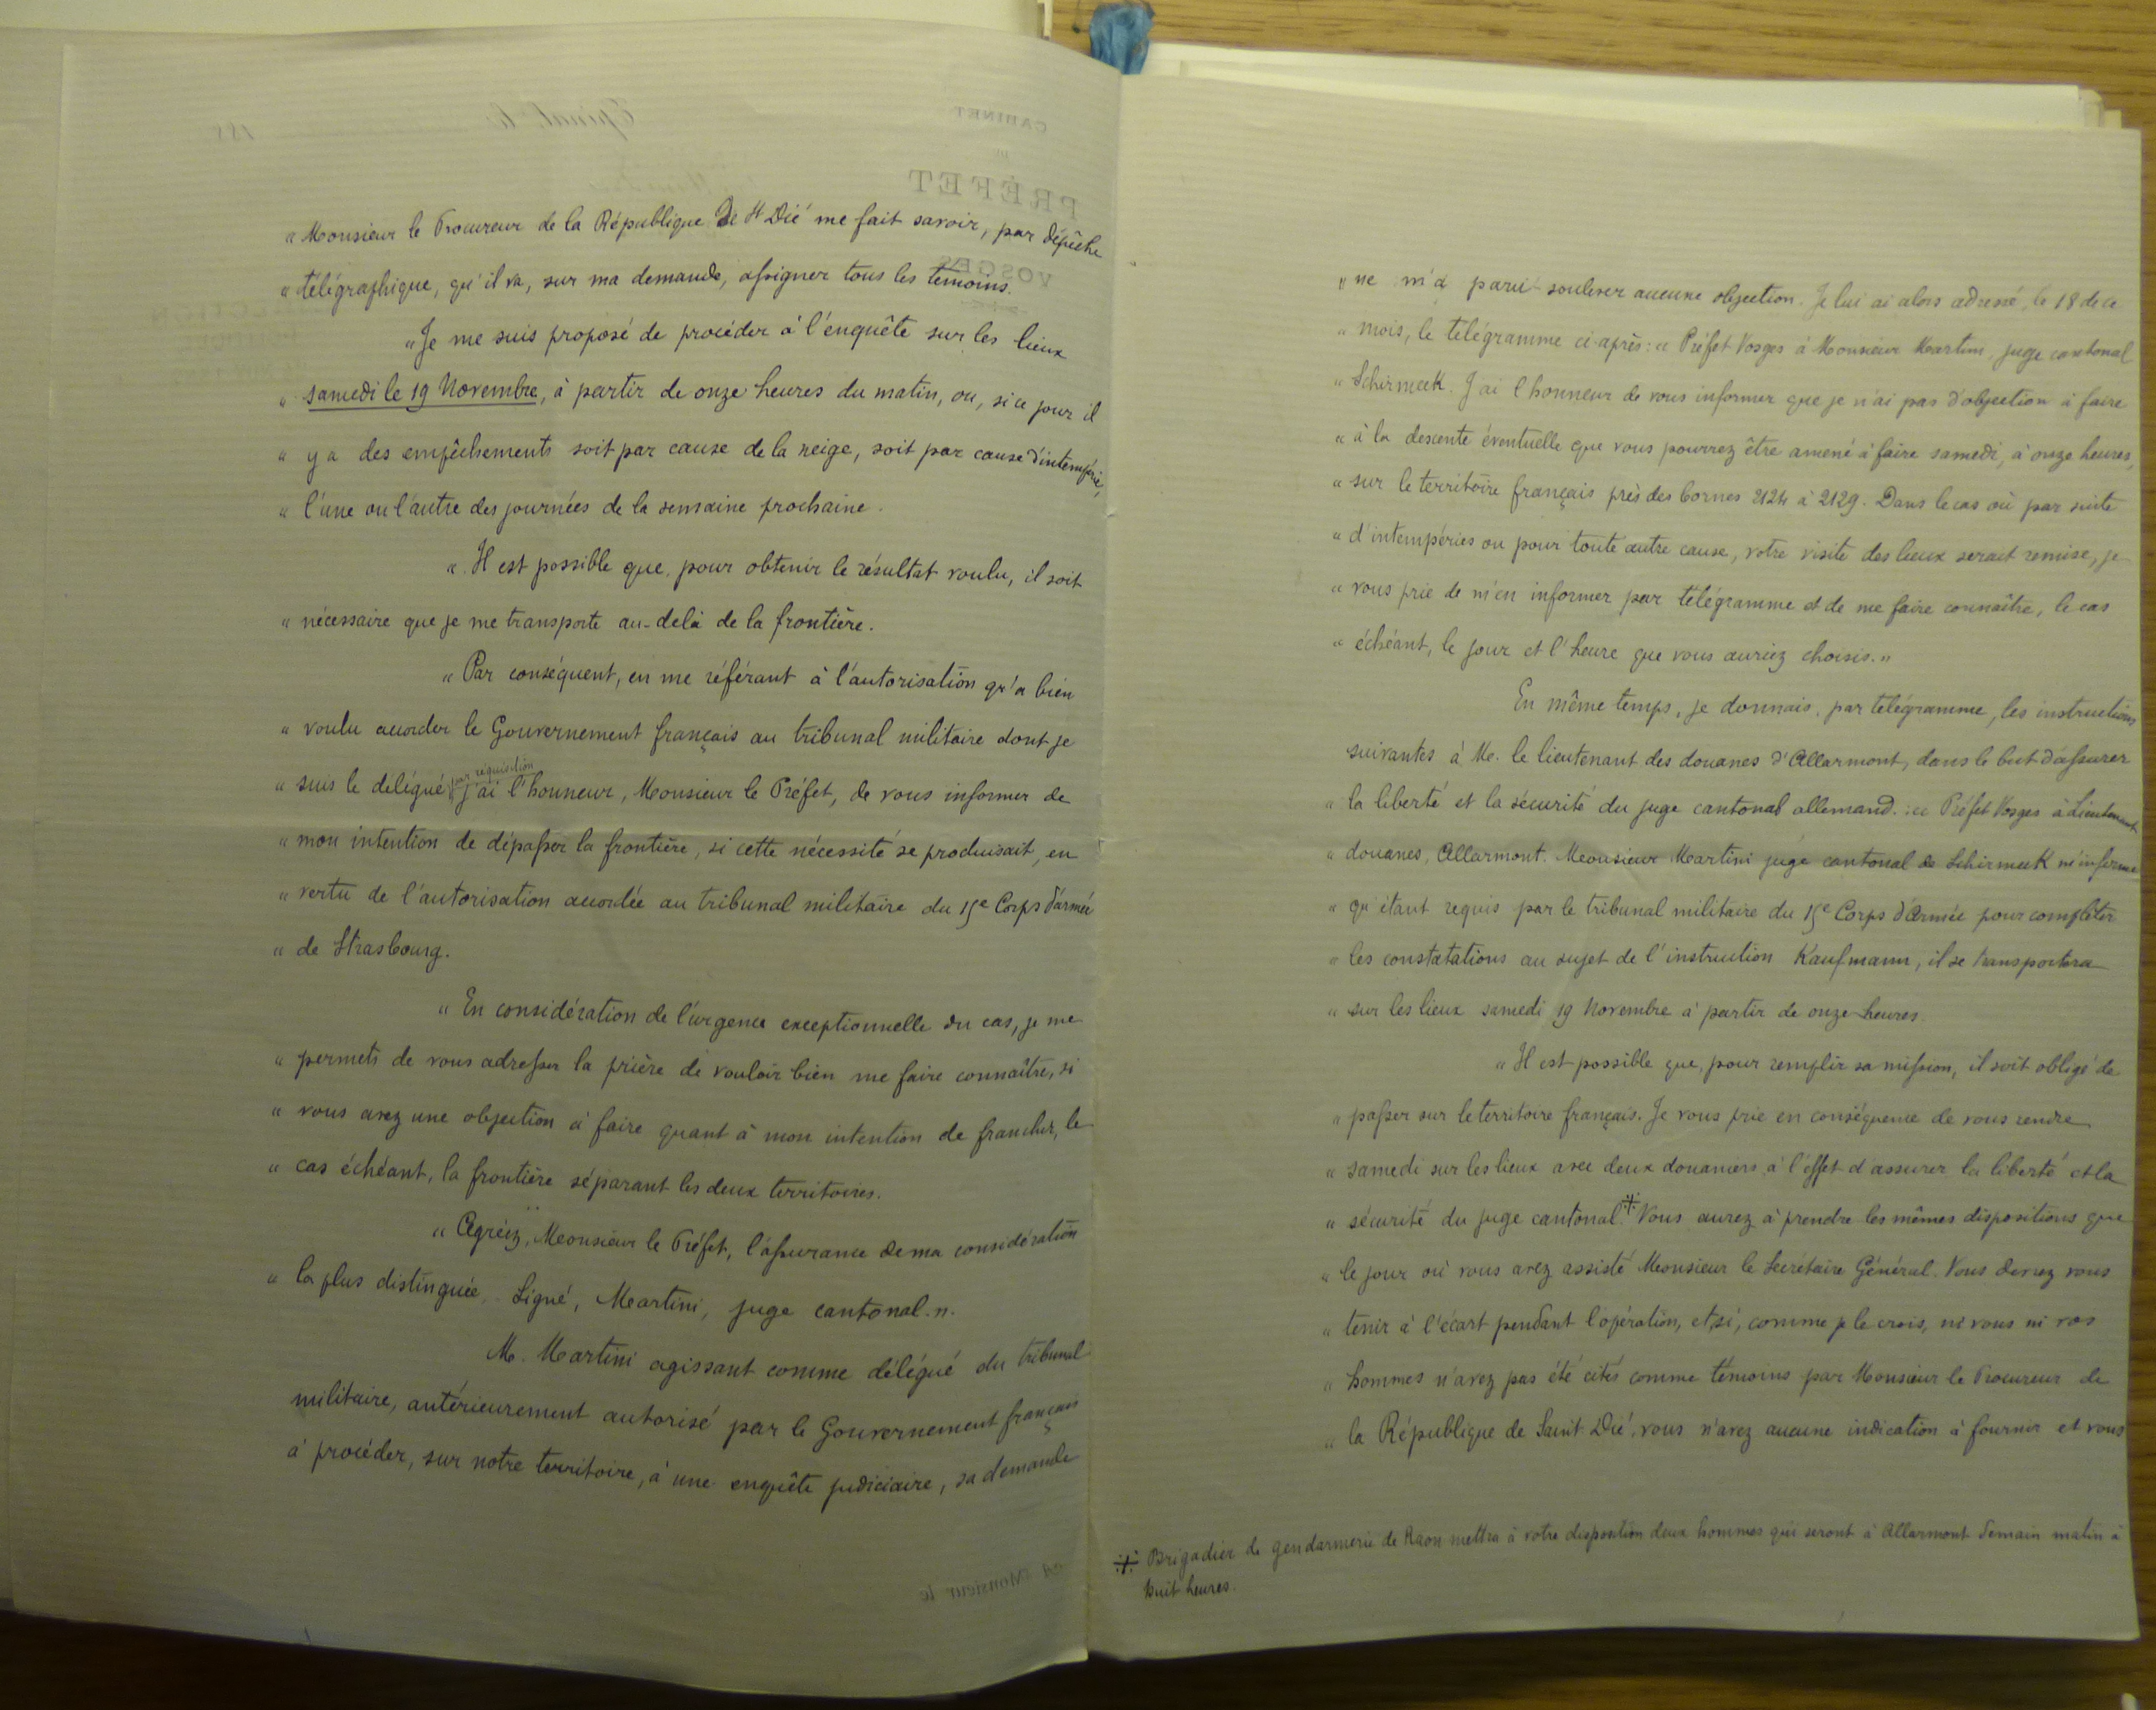 " Monsieur le Procureur de la République de St Dié me fait savoir, par dépêche
" télégraphique, qu'il va, sur ma demande, assigner tous les témoins.
" Je me suis proposé de procéder à l'enquête sur les lieux
" samedi le 19 Novembre, à partir de onze heures du matin, ou, si ce jour il
" y a des empêchements soit par cause de la neige, soit par cause d'intempérie,
" l'une ou l'autre des journées de la semaine prochaine.
" Il est possible que, pour obtenir le résultat voulu, il soit
" nécessaire que je me transporte au-delà de la frontière.
" Par conséquent, en me référant à l'autorisation qu'a bien
" voulu accorder le Gouvernement français au tribunal militaire dont je
" suis le délégué par réquisition j'ai l'honneur, Monsieur le Préfet, de vous informer de
" mon intention de dépasser la frontière, si cette nécessité se produisait, en
" vertu de l'autorisation accordée au tribunal militaire du 15e Corps d'armée
" de Strasbourg.
" En considération de l'urgence exceptionnelle du cas, je me
" permets de vous adresser la prière de vouloir bien me faire connaître, si
" vous avez une objection à faire quant à mon intention de franchir, le
" cas échéant, la frontière séparant les deux territoires.
" Agréez, Monsieur le Préfet, l'assurance de ma considération
" la plus distinguée. Signé, Martini, juge cantonal. "
M. Martini agissant comme délégué du tribunal
militaire, antérieurement autorisé par le Gouvernement français
à procéder, sur notre territoire, à une enquête judiciaire, sa demande
CABINET
DU
PRÉFET
VOSGES
Epinal, le
188
A Monsieur le
" ne m'a paru soulever aucune objection. Je lui ai alors adressé, le 18 de ce
" mois, le télégramme ci-après : " Préfet Vosges à Monsieur Martini, juge cantonal
" Schirmeck. J'ai l'honneur de vous informer que je n'ai pas d'objection à faire
" à la descente éventuelle que vous pourrez être amené à faire samedi, à onze heures,
" sur le territoire français près des bornes 2124 à 2129. Dans le cas où par suite
" d'intempéries ou pour toute autre cause, votre visite des lieux serait remise, je
" vous prie de m'en informer par télégramme et de me faire connaître, le cas
" échéant, le jour et l'heure que vous auriez choisis. "
En même temps, je donnais, par télégramme, les instructions
suivantes à M. le lieutenant des douanes d'Allarmont, dans le but d'assurer
" la liberté et la sécurité du juge cantonal allemand. : " Préfet Vosges à Lieutenant
" douanes, Allarmont. Monsieur Martini juge cantonal de Schirmeck m'informe
" qu'étant requis par le tribunal militaire du 15e Corps d'Armée pour compléter
" les constatations au sujet de l'instruction Kaufmann, il se transportera
" sur les lieux samedi 19 Novembre à partir de onze heures.
" Il est possible que, pour remplir sa mission, il soit obligé de
" passer sur le territoire français. Je vous prie en conséquence de vous rendre
" samedi sur les lieux avec deux douaniers à l'effet d'assurer la liberté et la
" sécurité du juge cantonal. ※ Vous aurez à prendre les mêmes dispositions que
" le jour où vous avez assisté Monsieur le Secrétaire Général. Vous devrez vous
" tenir à l'écart pendant l'opération, et si, comme je le crois, ni vous ni vos
" hommes n'avez pas été cités comme témoins par Monsieur le Procureur de
" la République de Saint Dié, vous n'avez aucune indication à fournir et vous
※ Brigadier de gendarmerie de Raon mettra à votre disposition deux hommes qui seront à Allarmont demain matin à
huit heures.